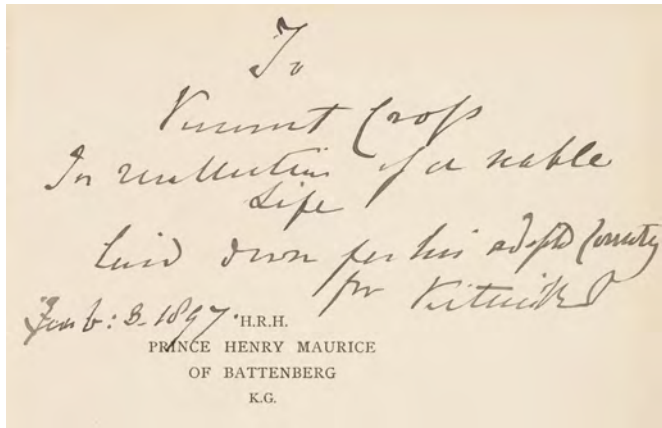 To
Vincent Cross
In recollection of a noble
Life
laid down for his adopted Country
from Victoria RI
Feb: 3. 1897.
H.R.H.
PRINCE HENRY MAURICE
OF BATTENBERG
K.G.